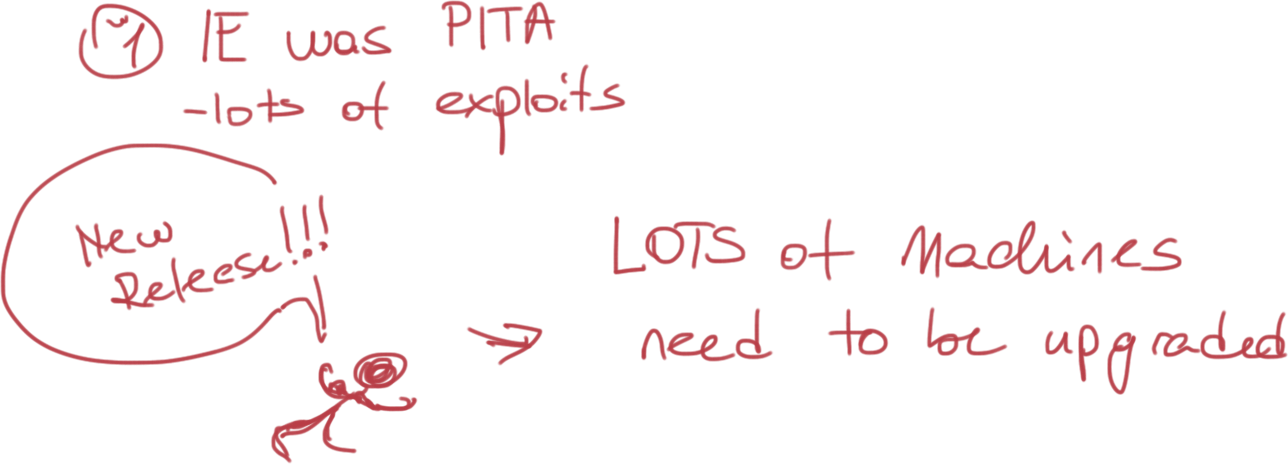 IE was PITA
-lots of exploits
New
Release!!!
LOTS of Machines
need to be upgraded